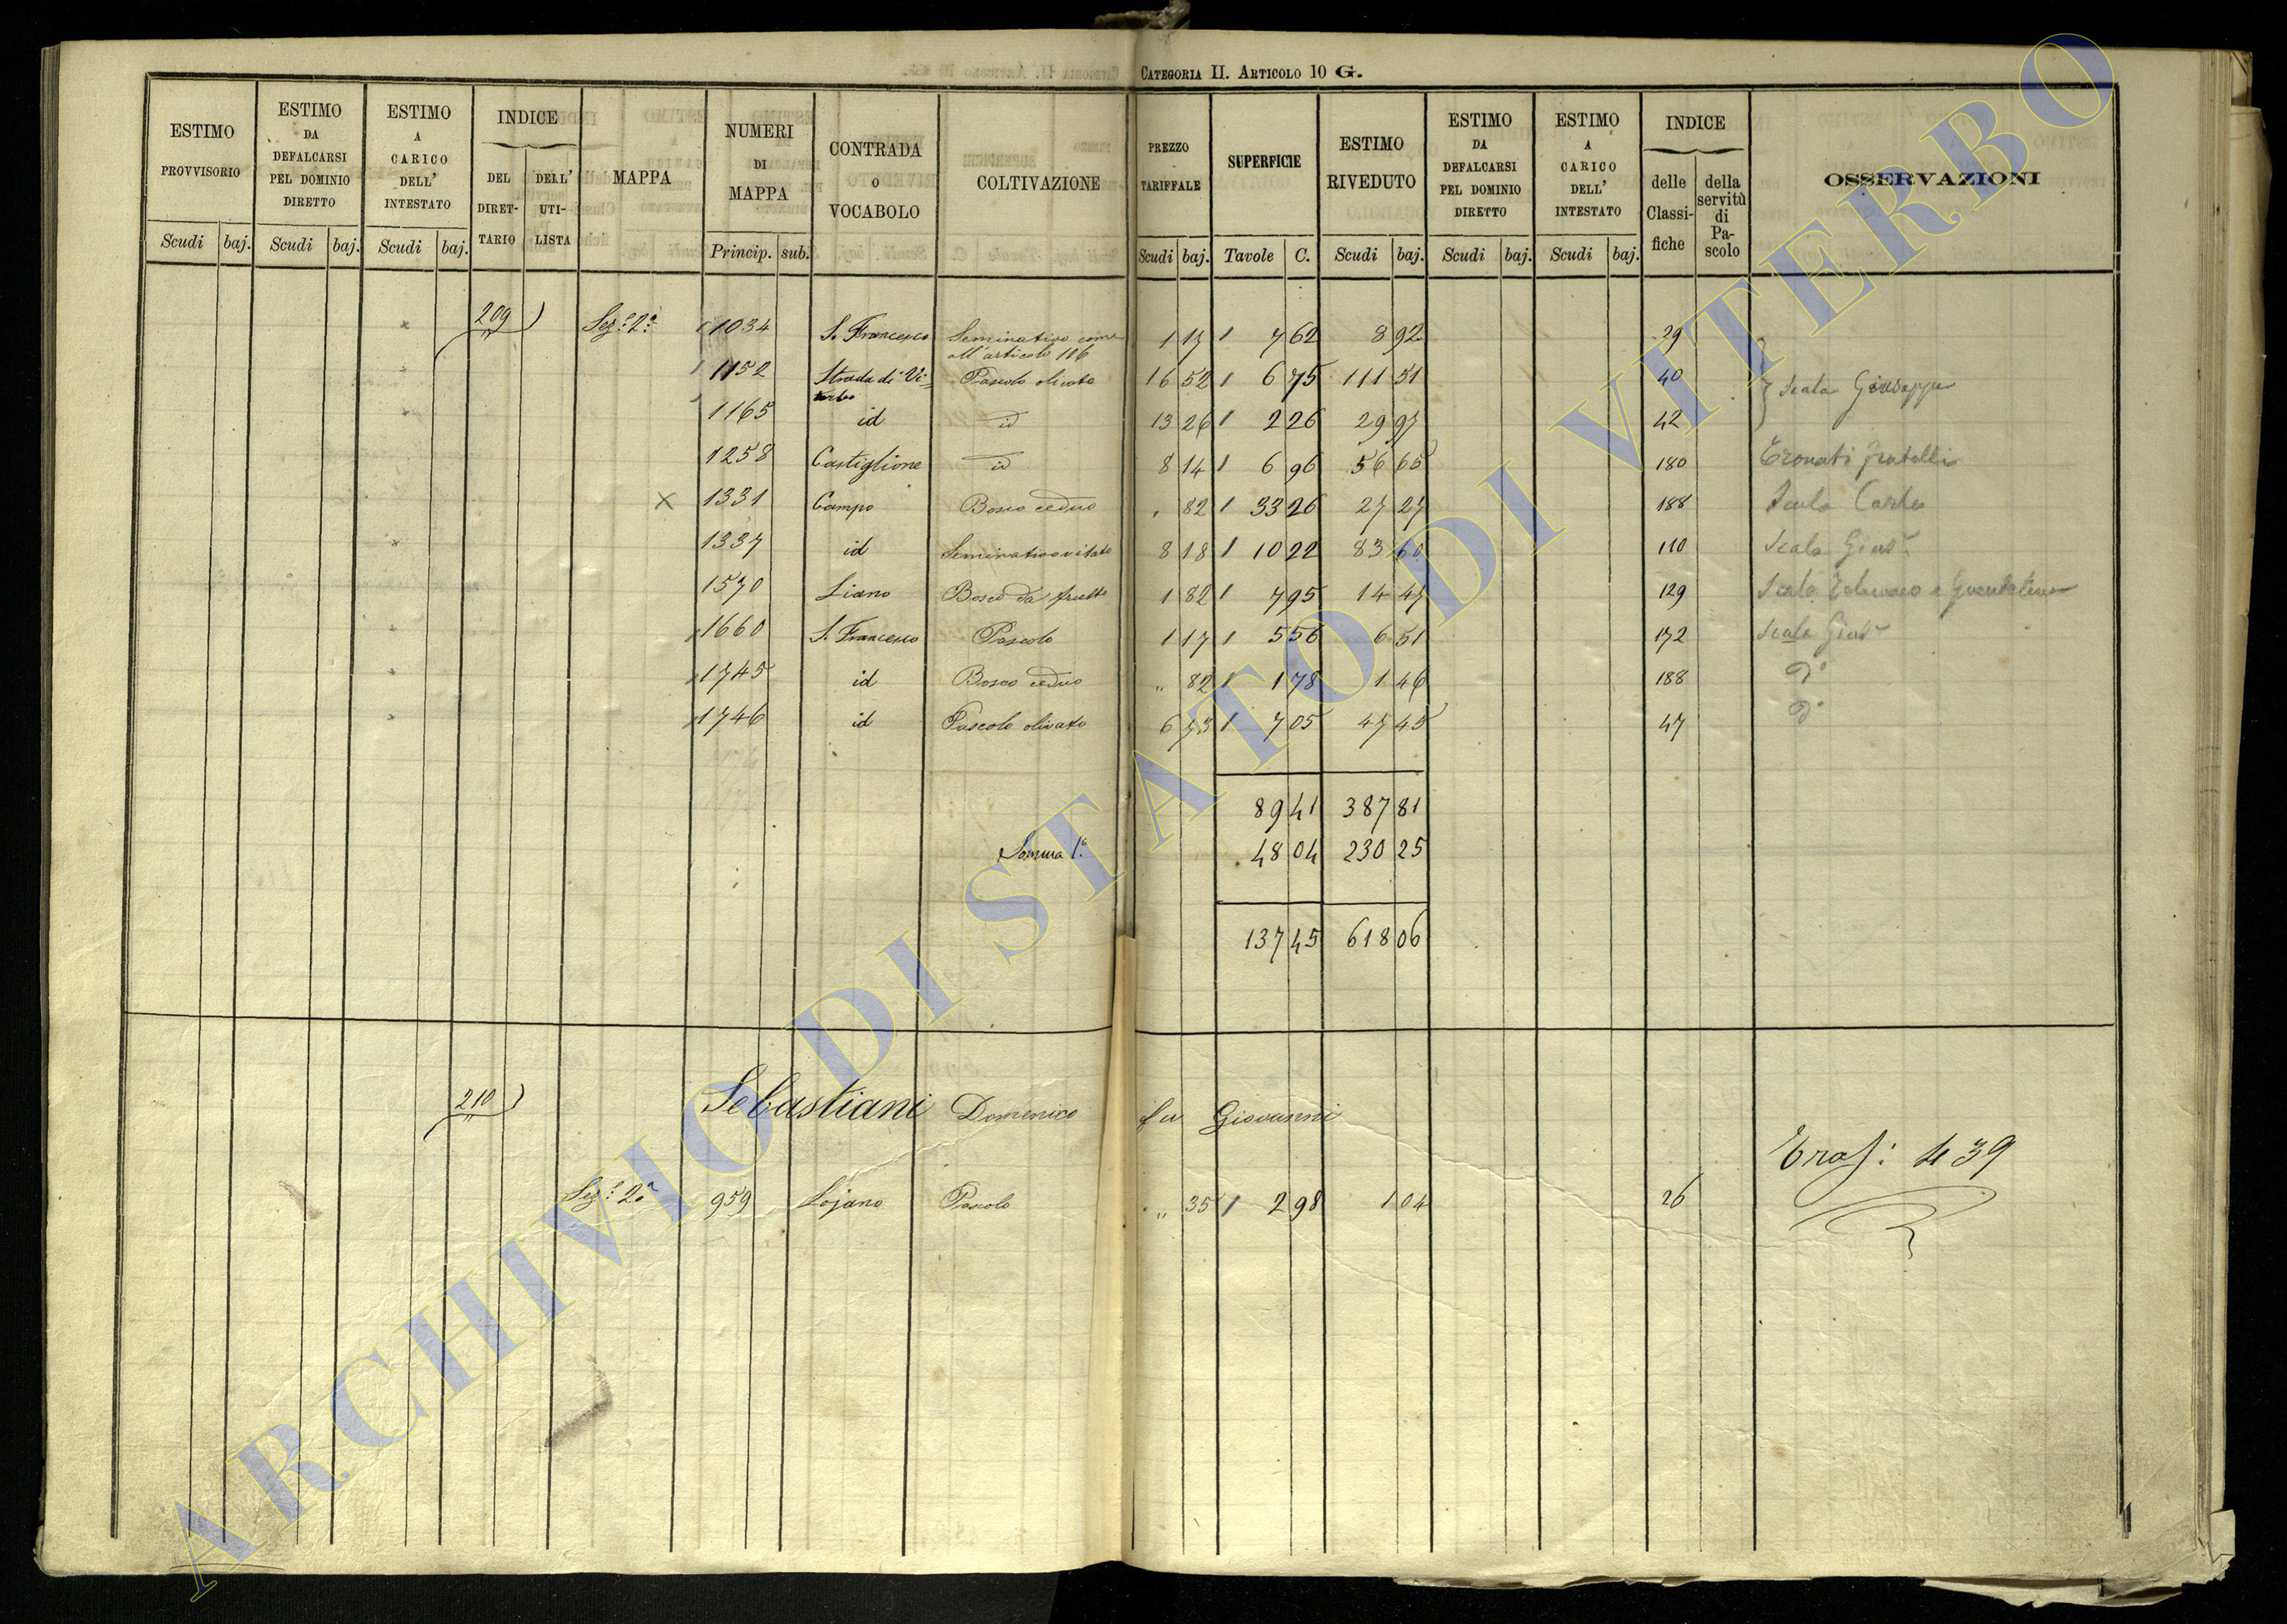 CATEGORIA II. ARTICOLO 10 G.
ESTIMO PROVVISORIO Scudi baj.
ESTIMO DA DEFALCARSI PEL DOMINIO DIRETTO Scudi baj.
ESTIMO A CARICO DELL' INTESTATO Scudi baj.
INDICE DEL DIRETTARIO DELL' UTILISTA
MAPPA
NUMERI DI MAPPA Princip. sub.
CONTRADA O VOCABOLO
COLTIVAZIONE
PREZZO TARIFFALE Scudi baj.
SUPERFICIE Tavole C.
ESTIMO RIVEDUTO Scudi baj.
ESTIMO DA DEFALCARSI PEL DOMINIO DIRETTO Scudi baj.
ESTIMO A CARICO DELL' INTESTATO Scudi baj.
INDICE delle Classifiche della servitù di Pascolo
OSSERVAZIONI
209) Sez.e 2.a 1034 S. Francesco Seminativo come all'articolo 106 1 17 7 62 8 92 29
1152 Strada di Viterbo Pascolo olivato 16 52 6 75 111 51 40 Scala Giuseppe
1165 id id 13 26 2 26 29 97 42
1258 Castiglione id 8 14 6 96 56 65 180 Tronati fratelli
X 1331 Campo Bosco ceduo " 82 33 26 27 27 188 Scala Carlo
1337 id Seminativo vitato 8 18 10 22 83 60 110 Scala Gius.e
1570 Liano Bosco da frutto 1 82 7 95 14 47 129 Scala
1660 S. Francesco Pascolo 1 17 5 56 6 51 172 Scala Gius.e
1745 id Bosco ceduo " 82 1 78 1 46 188 d.o
1746 id Pascolo olivato 6 73 7 05 47 45 47 d.o
89 41 387 81
Somma 1.a 48 04 230 25
137 45 618 06
210) Sebastiani Domenico fu Giovanni
Tras: 439
Sez.e 2.a 959 Lojano Pascolo " 35 2 98 1 04 26
ARCHIVIO DI STATO DI VITERBO